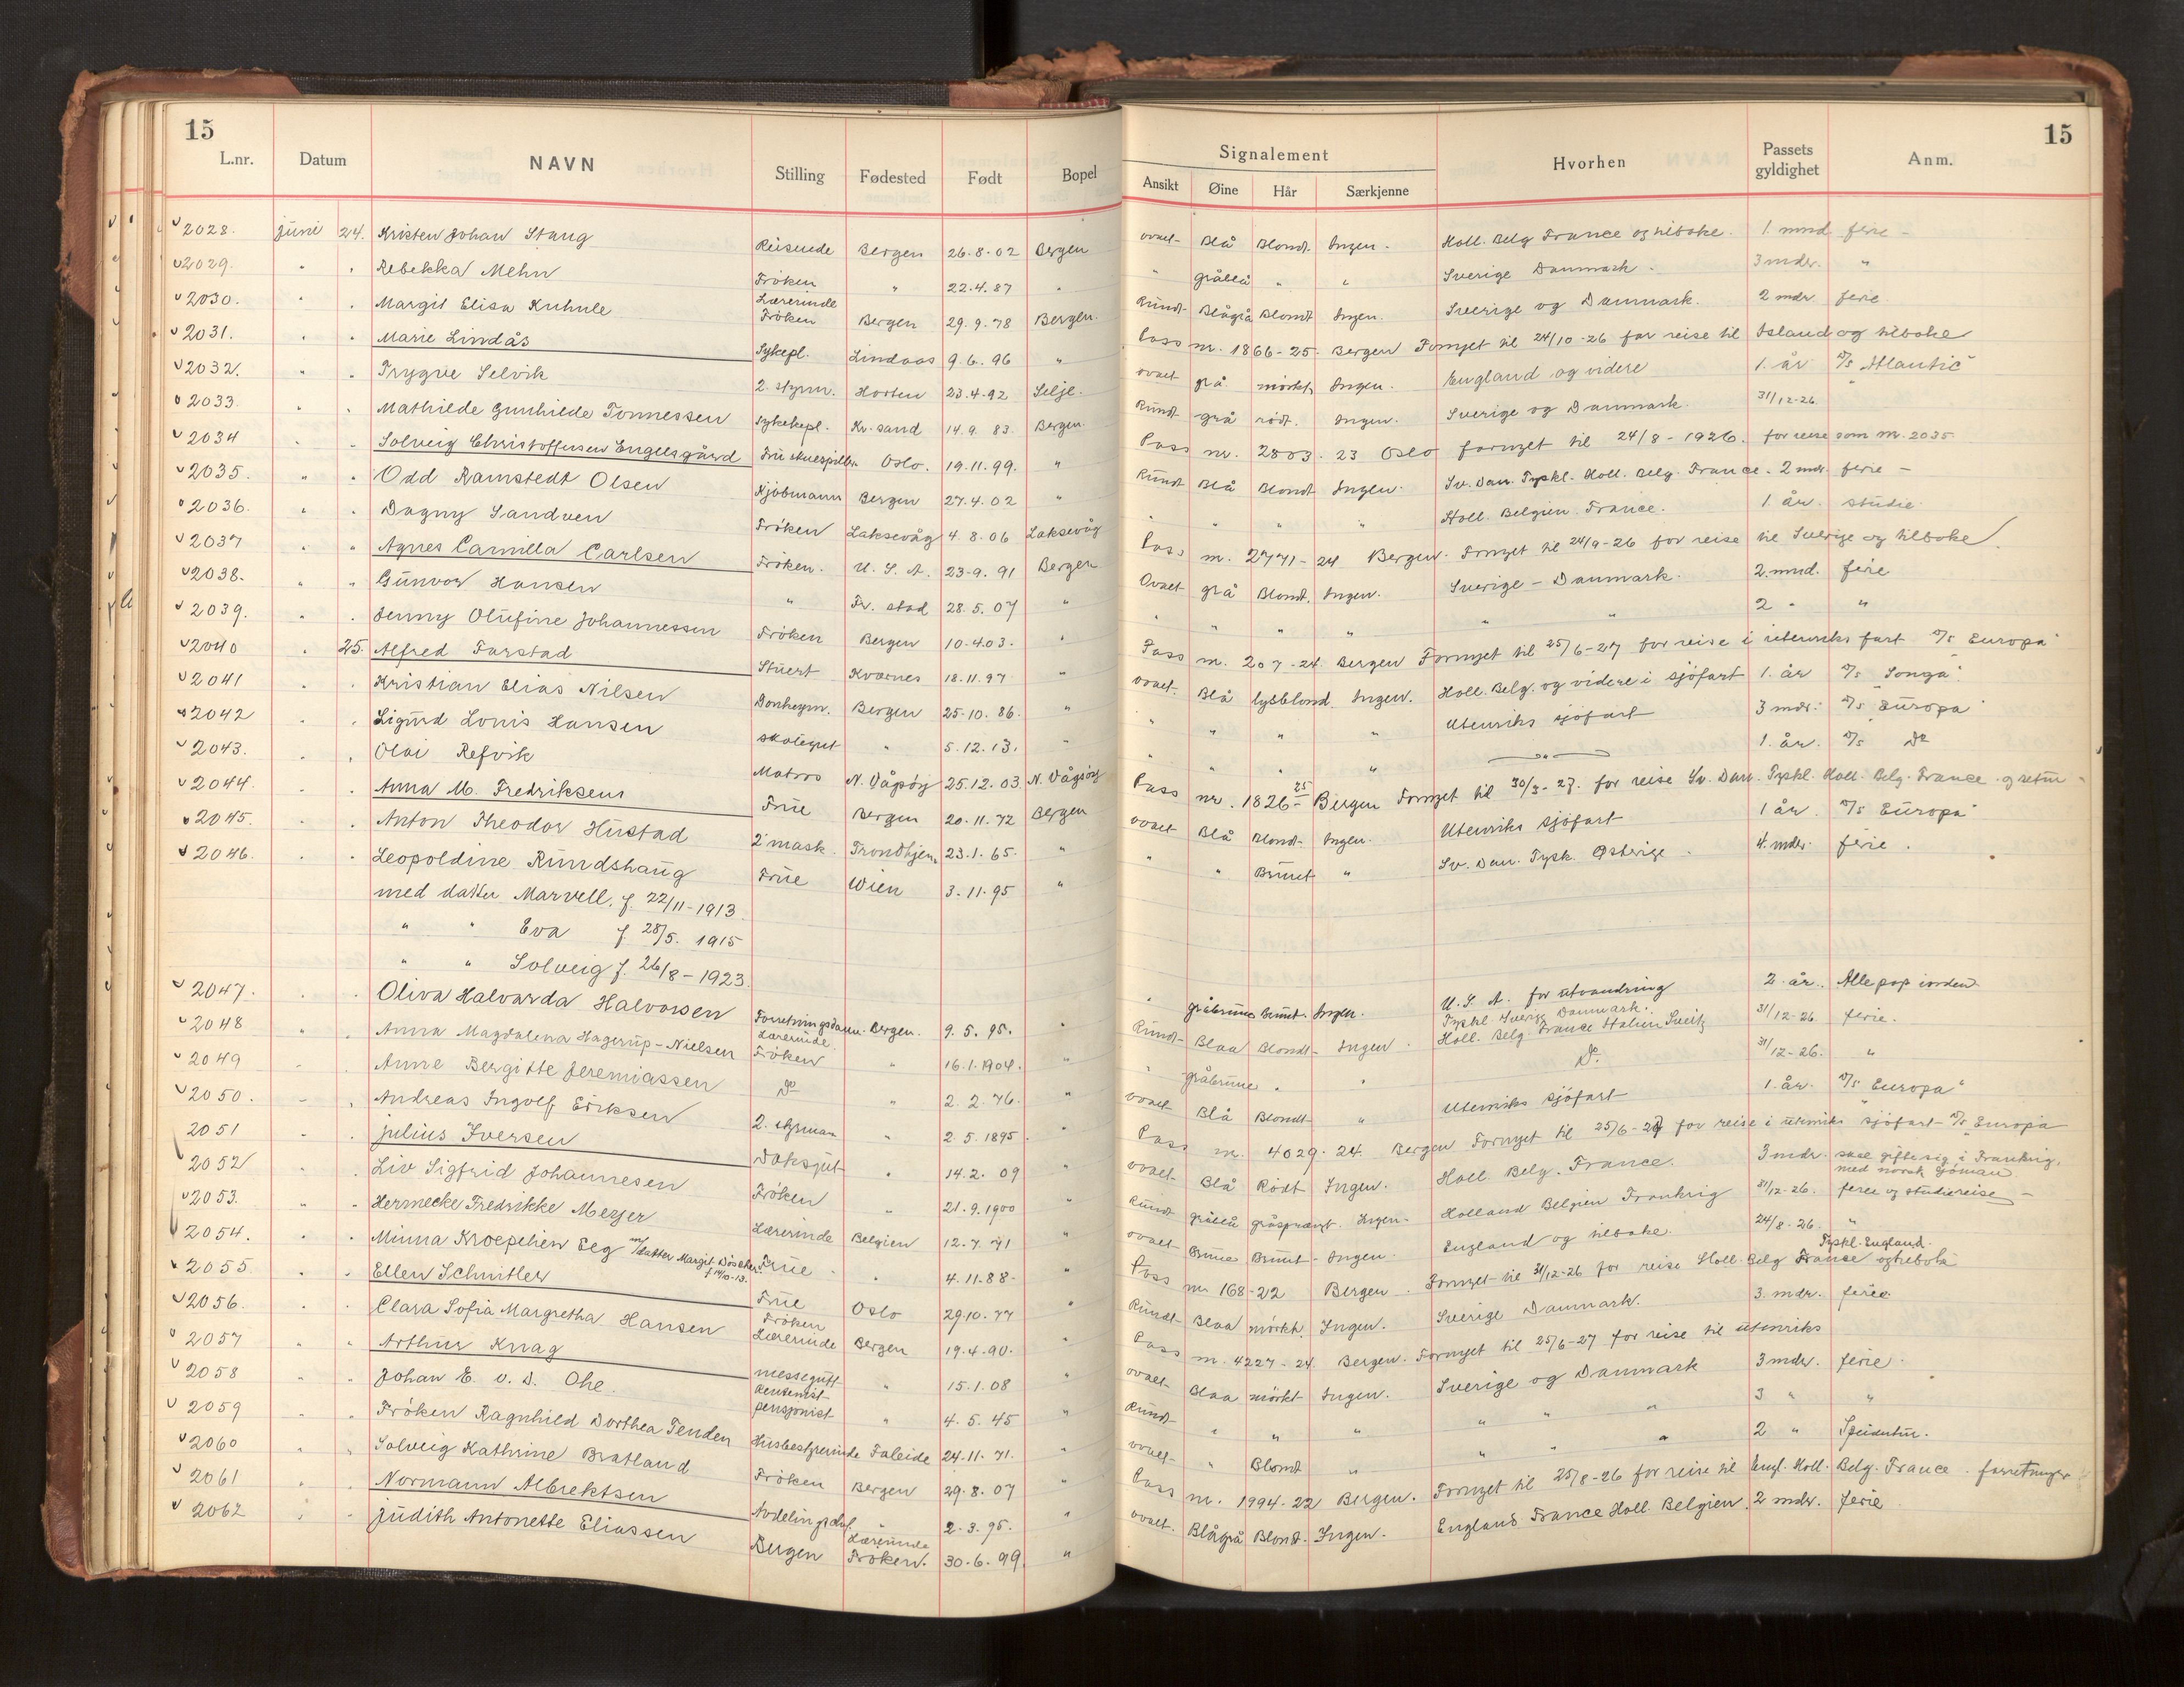 15
L.nr. Datum NAVN Stilling Fødested Født Bopel
2028. juni 24. Kristen Johan Stang Reisende Bergen 26.8.02 Bergen
2029. " " Rebekka Mehn Frøken " 22.4.87 "
2030. " " Margit Elisa Kuhnle Lærerinde Frøken Bergen 29.9.78 Bergen.
2031. " " Marie Lindås Sykepl. Lindaas 9.6.96 "
2032. " " Trygve Selvik 2. styrm. Horten 23.4.92 Selje.
2033 " " Mathilde Gunhilde Tonnessen Sykekepl. Kr.sand 14.9.83. Bergen
2034 " " Solveig Christoffersen Engelsgård Frü skuespiller Oslo. 19.11.99. "
2035. " " Odd Ramstedt Olsen Kjøbmann Bergen 27.4.02 "
2036. " " Dagny Sandven Frøken Laksevåg 4.8.06 Laksevåg
2037 " " Agnes Camilla Carlsen Frøken. U.S.A. 23.9.91 Bergen
2038. " " Günvor Hansen " Fr.stad 28.5.07 "
2039. " " Jenny Olüfine Johannessen Frøken Bergen 10.4.03. "
2040 " 25. Alfred Farstad Stüert Kvernes 18.11.97 "
2041 " " Kristian Elias Nilsen Donkeym. Bergen 25.10.86. "
2042 " " Sigürd Lonis Hansen skolegut " 5.12.13. "
2043. " " Olai Refvik Matros N. Vågsøy 25.12.03. N. Vågsøy
2044. " " Anna M. Fredriksen Früe Bergen 20.11.72 Bergen
2045. " " Anton Theodor Hüstad 2 mask. Trondhjem 23.1.65. "
2046. " " Leopoldine Ründshaüg Früe Wien 3.11.95 "
med datter Marvell. f. 22/11-1913.
" " Eva f. 28/5. 1915
" " Solveig f. 26/8-1923.
2047. " " Oliva Halvarda Halvorsen Forretningsdame. Bergen. 9.5.95. "
2048 " " Anna Magdalena Hagerüp-Nielsen Lærerinde. Frøken " 16.1.1904. "
2049 " " Anne Bergitte Jeremiassen Do " 2.2.76. "
2050. " " Andreas Ingolf Eriksen 2. styrman " 2.5.1895. "
2051 " " Julius Iversen Dæksgüt " 14.2.09 "
2052 " " Liv Sigfrid Johannesen Frøken " 21.9.1900 "
2053. " " Hermecke Fredrikke Meyer Lærerinde Belgien 12.7.71 "
2054. " " Minna Kroepelien Eeg m/datter Margit Døscher f 14/10-13. Früe " 4.11.88. "
2055. " " Ellen Schnitler Früe Oslo 29.10.77 "
2056. " " Clara Sofia Margretha Hansen Frøken Lærerinde Bergen 19.4.90. "
2057 " " Arthur Knag messegütt " 15.1.08 "
2058 " " Johan E. v. D. Ohe. pensjonist " 4.5.45 "
2059 " " Frøken Ragnhild Dorthea Tenden Hüsbestyrerinde Faleide 24.11.71. "
2060 " " Solveig Kathrine Bratland Frøken Bergen 29.8.07 "
2061 " " Normann Albrektsen Avdelingschef. " 2.3.95. "
2062 " " Judith Antonette Eliassen Bergen Lærerinde Frøken. 30.6.99. "
15
Signalement Hvorhen Passets gyldighet Anm.
Ansikt Øine Hår Særkjenne
ovael- Blå Blond. Ingen. Holl. Belg France og tilbake. 1. mnd ferie -
" gråblå " " Sverige Danmark. 3 mdr. "
Ründ- Blågrå Blondt Ingen. Sverige og Danmark. 2 mdr ferie.
Pass nr. 1866-25. Bergen Fornyet til 24/10-26 for reise til Island og tilbake
ovaet grå mørkt Ingen. England og videre 1. år D/s "Atlantic"
Rünt. grå rødt. Ingen. Sverige og Danmark. 31/12-26.
Pass nr. 2803. 23 Oslo fornyet til 24/8-1926. for reise som nr. 2035.
Ründt Blå Blondt Ingen. Sv. Dan. Tyskl. Holl. Belg. France. 2 mdr. ferie -
" " " " Holl. Belgien. France. 1. år. stüdie.
Pass nr. 2771-24 Bergen. Fornyet til 24/9-26 for reise til Sverige og tilbake
Ovaet grå Blondt. Ingen. Sverige - Danmark. 2. mnd. ferie
" " " " " " 2 " "
Pass nr. 207-24. Bergen Fornyet til 25/6-27 for reise i ütenriks fart D/s "Europa"
ovaet- Blå lysblond. Ingen. Holl. Belg. og videre i sjøfart 1. år D/s "Songa".
" " " " Utenriks sjøfart 3 mdr. D/s "Europa"
" " " " " 1. år. D/s Do
Pass nr. 1826-25 Bergen Fornyet til 30/3-27. for reise Sv. Dan. Tyskl. Holl. Belg. France. og retür
ovaet Blå Blond. Ingen. Utenriks sjøfart 1 år. D/s Europa"
" " Brünet " Sv. Dan. Tysk. Østerige. 4. mdr. ferie.
" gråbrüne Brünet. Ingen. U.S.A. for ütvandring 2. år.
Ründt- Blaa Blondt- Ingen. Tyskl Sverige Danmark. Holl. Belg. France Italien Sveitz 31/12-26. ferie.
" gråbrüne " " Do. 31/12-26. "
ovaet Blå Blondt- " Utenriks sjøfart 1. år. D/s "Europa"
Pass nr. 4029. 24. Bergen Fornyet til 25/6-27 for reise i ütenriks sjøfart- D/s "Europa
ovaet- Blå Rødt Ingen. Holl. Belg. France. 3 mdr. skal gifte sig i Frankrig. med norsk sjøman
Ründ gråblå gråsprængt. Ingen. Holland Belgien Frankrig 31/12-26. ferie og stüdiereise -
ovaet- Brüne Brünet- Ingen. England og tilbake. 24/8-26. "
Pass nr 168-22 Bergen. Fornyet til 31/12-26 for reise Holl. Belg France Tyskl. England. og tilbake
Ründt- Blaa mørkt. Ingen. Sverige Danmark. 3. mdr. ferie.
Pass nr. 4227-24. Bergen. Fornyet til 25/6-27 for reise til ütenriks
ovaet- Blaa mørkt Ingen. Sverige og Danmark 3 mdr. ferie.
Ründt- " " " " " " 3 " "
ovaet- " Blond " " " " 2 " Speidertür.
Pass nr. 1994-22 Bergen. Fornyet til 25/8-26 for reise til Engl. Holl. Belg. France. forretninger
ovaet. Blågrå Blond. Ingen. England France Holl. Belgien. 2 mdr. ferie